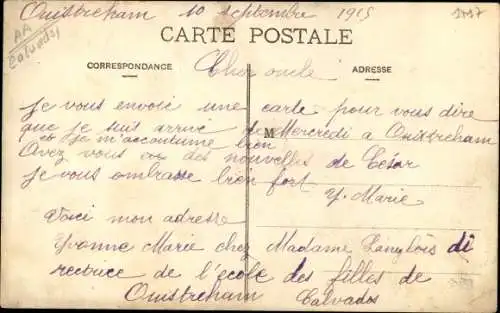 Ouistreham 10 septembre 1915
AA
Calvados
CARTE POSTALE
CORRESPONDANCE
ADRESSE
Cher oncle
je vous envoie une carte pour vous dire
que je suit arrivé le Mercredi a Ouistreham
M
et je m'accoutume bien
Avez vous eu des nouvelles de César
je vous ombrasse bien fort
Y. Marie
Voici mon adresse
Yvonne Marie chez Madame Langlois di
rectrice de l'école des filles de
Ouistreham Calvados